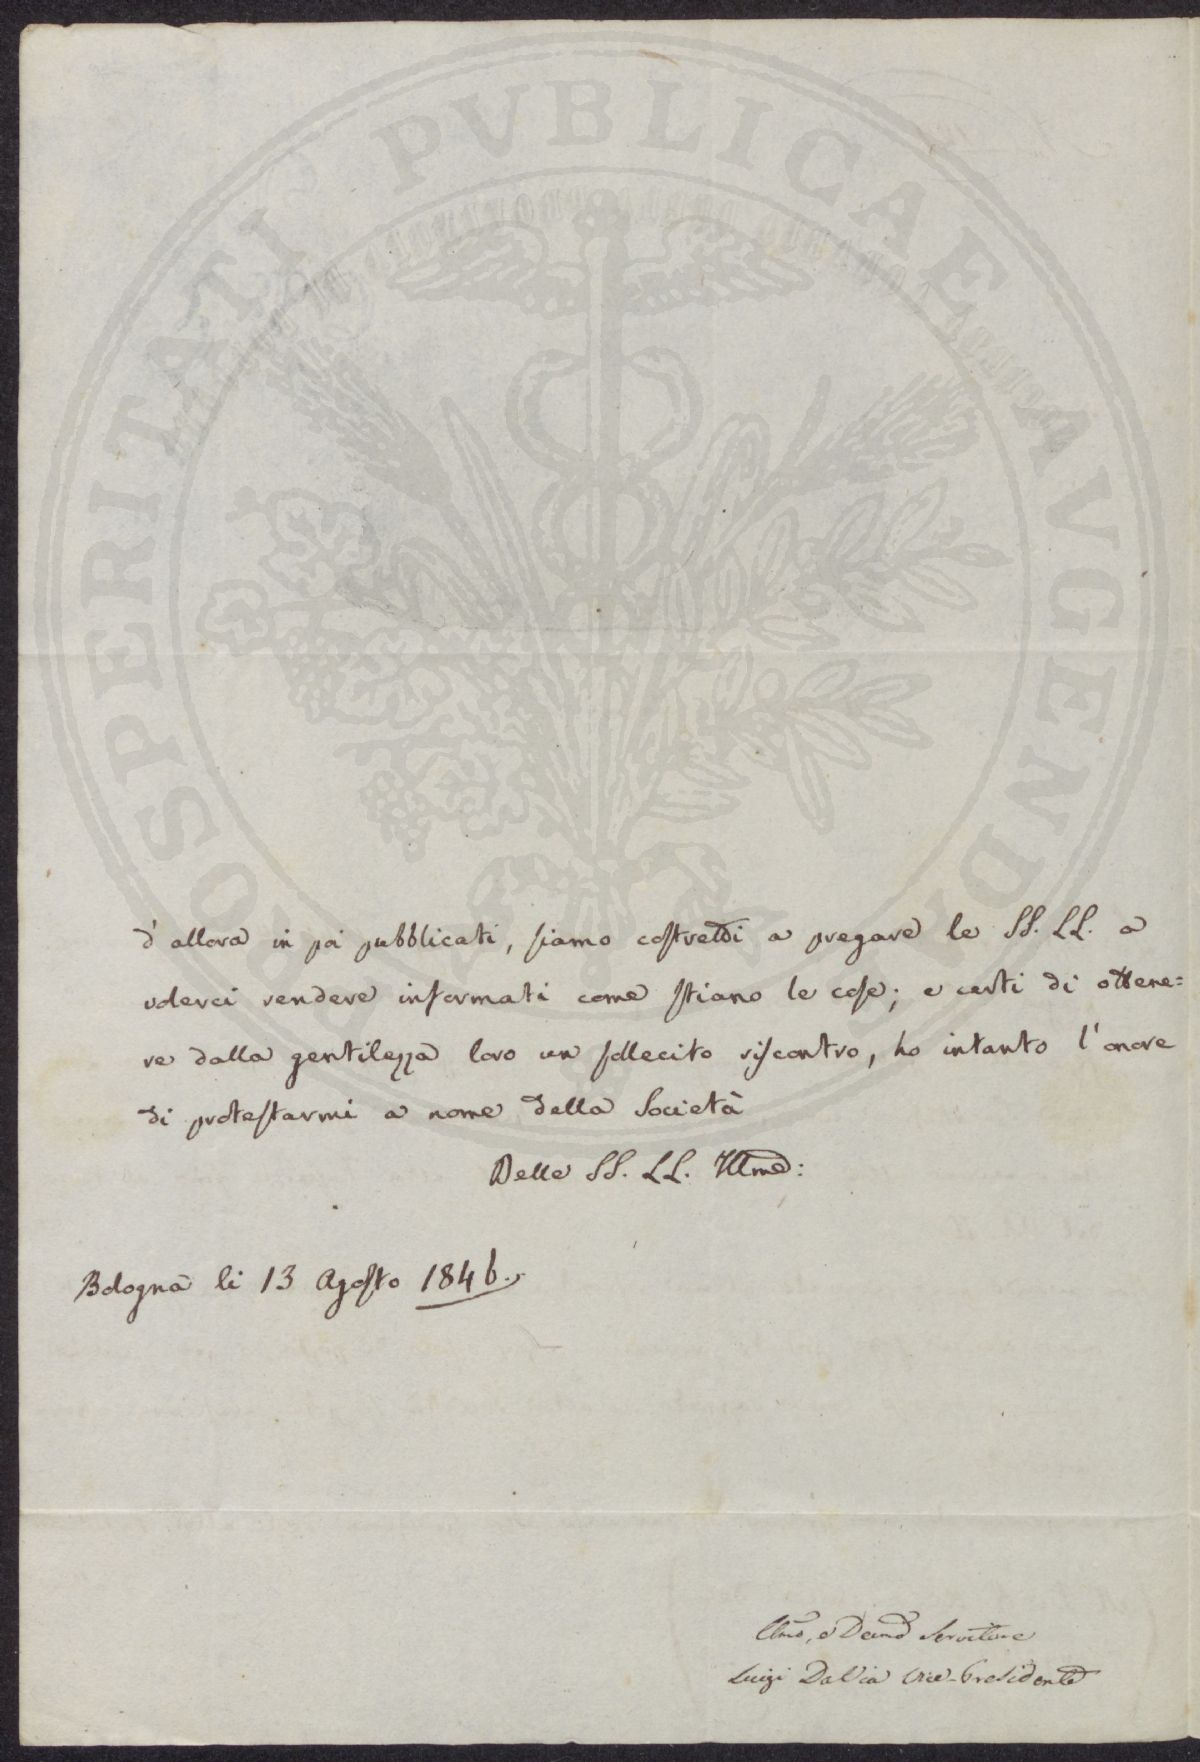 PROSPERITATI PVBLICAE AVGENDAE
d'allora in poi pubblicati, siamo costretti a pregare le SS. LL. a
volerci rendere informati come stiano le cose; e certi di ottene=
re dalla gentilezza loro un sollecito riscontro, ho intanto l'onore
di protestarmi a nome della Società
Delle SS. LL. Illme:
Bologna li 13 Agosto 1846.
Umo, e Devmo Servitore
Luigi Da Via Vice-Presidente